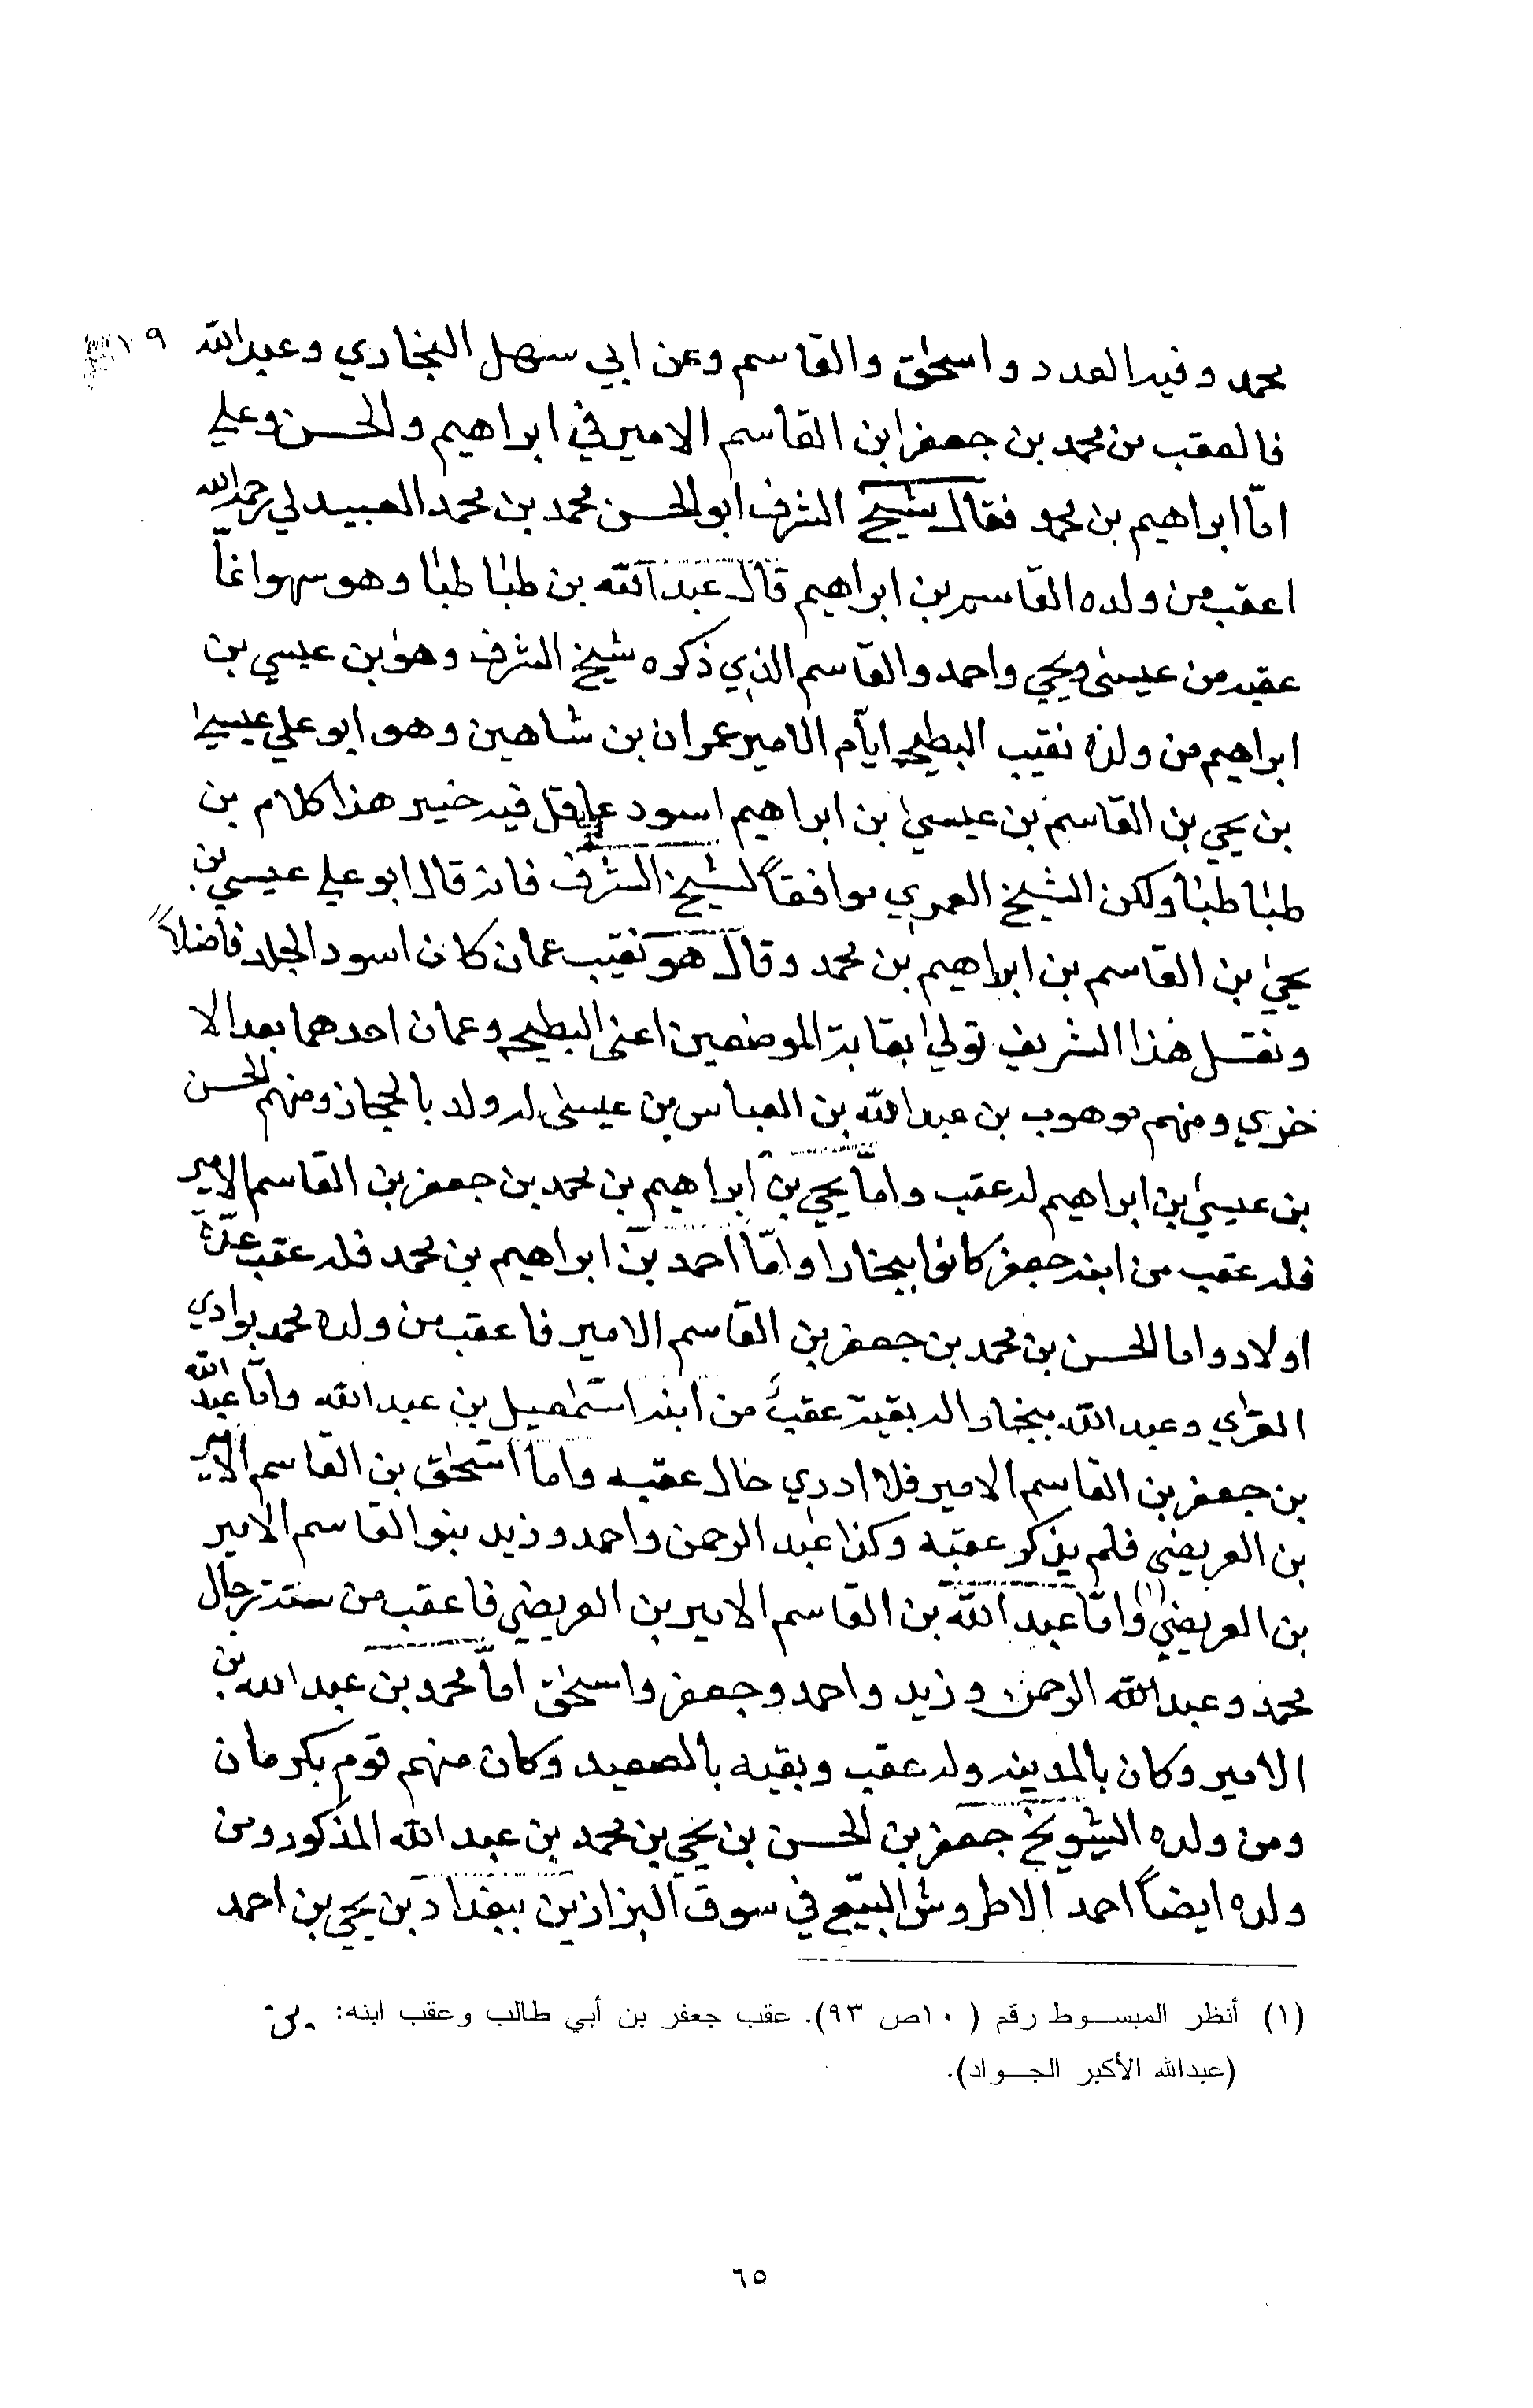 محمد وفيه العدد واسحٰق والقاسم وعن ابي سهل البخاري وعبدالله ١٩
فالعقب من محمد بن جعفر ابن القاسم الامير في ابراهيم والحسن وعلي
امّا ابراهيم بن محمد فقال شيخ الشرف ابو الحسن محمد بن محمد العبيدلي رحمه الله
اعقب من ولده القاسم بن ابراهيم قال عبد الله بن طباطبا وهو سهو انمّا
عقبه من عيسى ويحي واحمد والقاسم الذي ذكره شيخ الشرف وهو بن عيسي بن
ابراهيم من ولده نقيب البطيحه ايّام الامير عمران بن شاهين وهو ابو علي عيسى
بن يحي بن القاسم بن عيسى بن ابراهيم اسود عاقل فيه خير هذا كلام بن
طباطبا ولكن الشيخ العمري موافقاً لشيخ الشرف فانه قال ابو علي عيسي بن
يحيٰ بن القاسم بن ابراهيم بن محمد وقال هو نقيب عمان كان اسود الجلد فاضلاً
هذا الشريف تولى الموضعين اعنى البطيحه وعمان احدهما بعد الا
خري ومنهم موهوب بن عبد الله بن العباس بن عيسى له ولد بالحجاز ومنهم الحسن
بن عيسىٰ بن ابراهيم له عقب وامّا يحي بن ابراهيم بن محمد بن جعفر بن القاسم الامير
فله عقب من ابنه جعفر كانوا ببخارا وامّا احمد بن ابراهيم بن محمد فله عقب عدّة
اولاد واما الحسن بن محمد بن جعفر بن القاسم الامير فاعقب من ولده محمد بوادي
القراي وعبد الله ببخارا له بقية عقبٌ من ابنه اسمٰعيل بن عبد الله وامّا عبد الله
بن جعفر بن القاسم الامير فلا ادري حال عقبه واما اسحٰق بن القاسم الامير
بن العريضي فلم يذكر عقبه وكذا عبد الرحمن واحمد وزيد بنو القاسم الامير
بن العريضي(١) وامّا عبد الله بن القاسم الامير بن العريضي فاعقب من ستة رجال
محمد وعبدالله الرحمن وزيد واحمد وجعفر واسحٰق امّا محمد بن عبد الله بن
الامير وكان بالمدينه وله عقب وبقيه بالصعيد وكان منهم قوم بكرمان
ومن ولده الشويخ جعفر بن الحسن بن يحي بن محمد بن عبد الله المذكور ومن
ولده ايضاً احمد الاطروش البيّع في سوق البزازين ببغداد بن يحي بن احمد
(١) أنظر المبسوط رقم (١٠ص ٩٣). عقب جعفر بن أبي طالب وعقب ابنه:
(عبدالله الأكبر الجواد).
٦٥